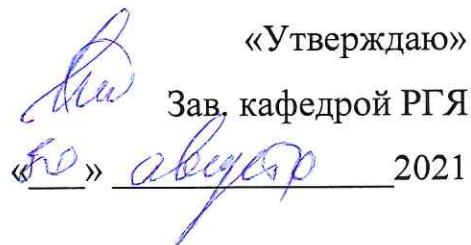 «Утверждаю»
Зав. кафедрой РГЯ
«30» августа 2021